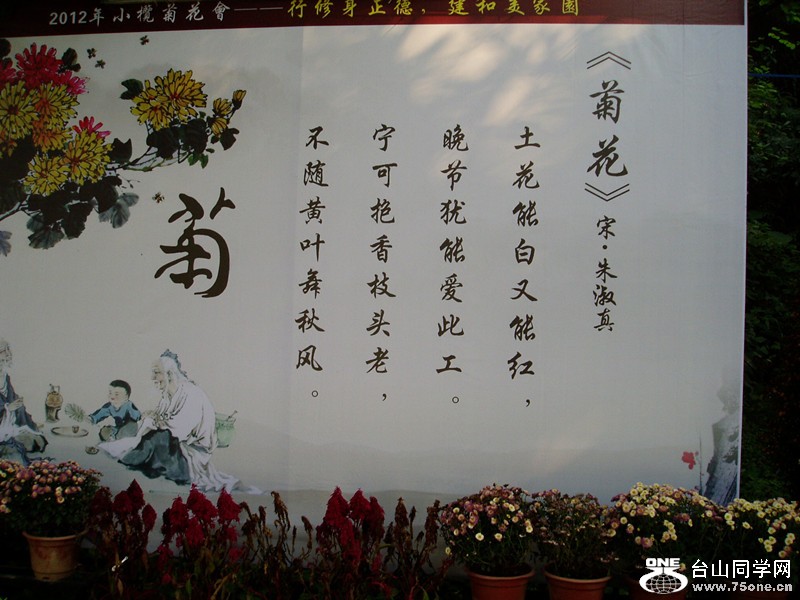 2012年小榄菊花會——行修身正德，建和美家園
《菊花》宋·朱淑真
土花能白又能红，
晚节犹能爱此工。
宁可抱香枝头老，
不随黄叶舞秋风。
菊
ONE
台山同学网
www.75one.cn